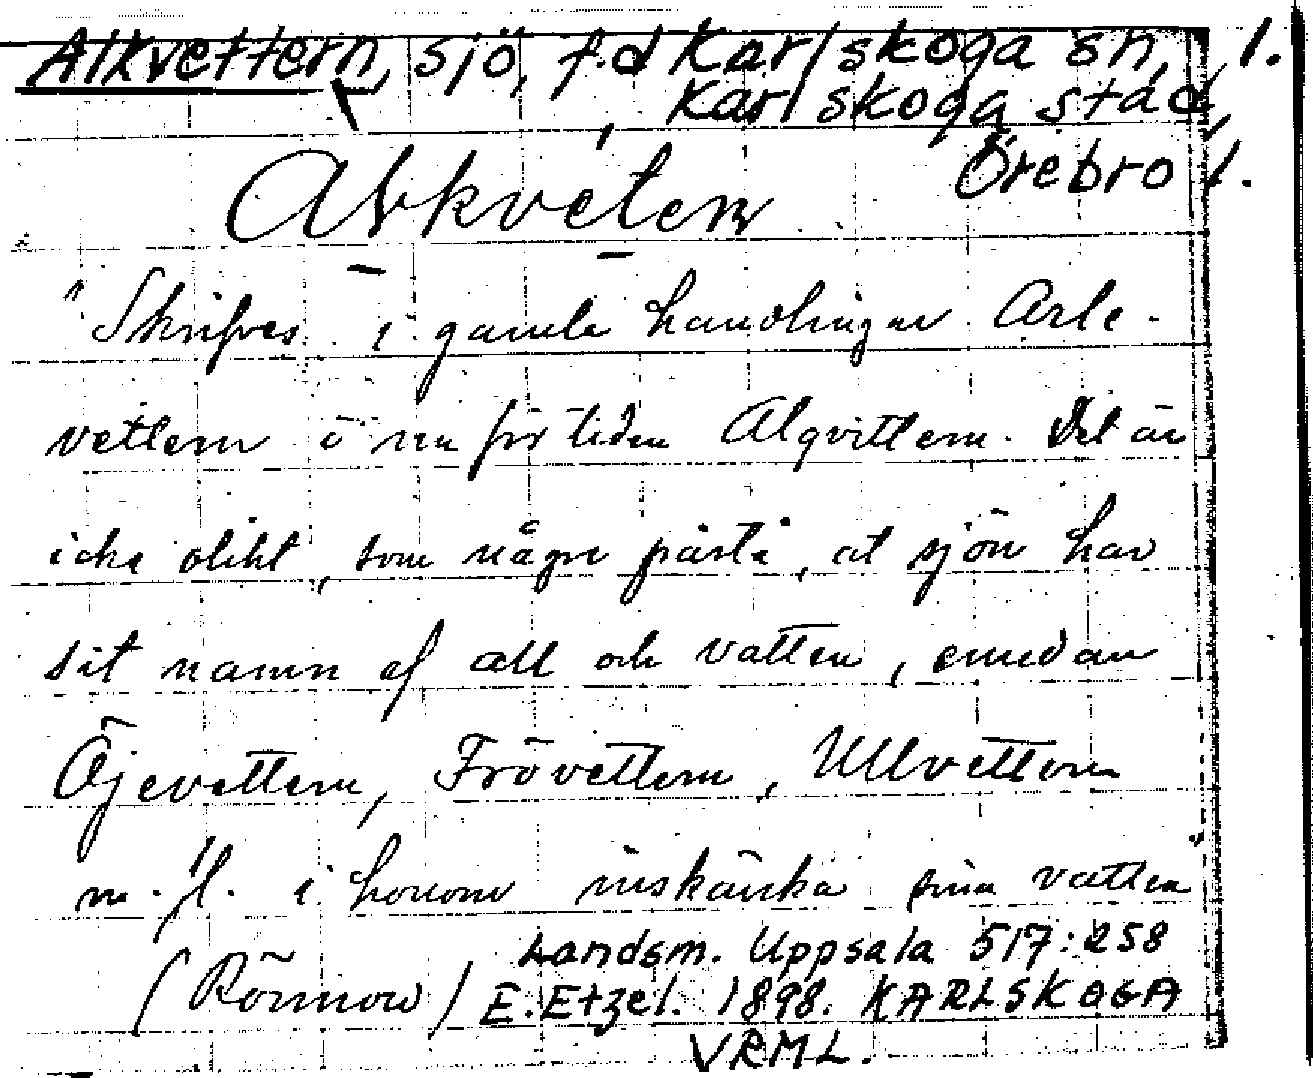 Alkvettern, sjö, f.d Karlskoga sn, 1.
Karlskoga stad,
Örebro l.
"Skrifves i gamla handlingar Arle-
vettern o nu för tiden Alqvittern. Det är
icke olikt, som några påstå, at sjön har
sit namn af all och vatten, emedan
Öjevettern, Frövettern, Ullvettern
m. fl. i honom inskänka sina vatten
(Rönnow)
Landsm. Uppsala 517:258
E. Etzel. 1898. KARLSKOGA
VRML.